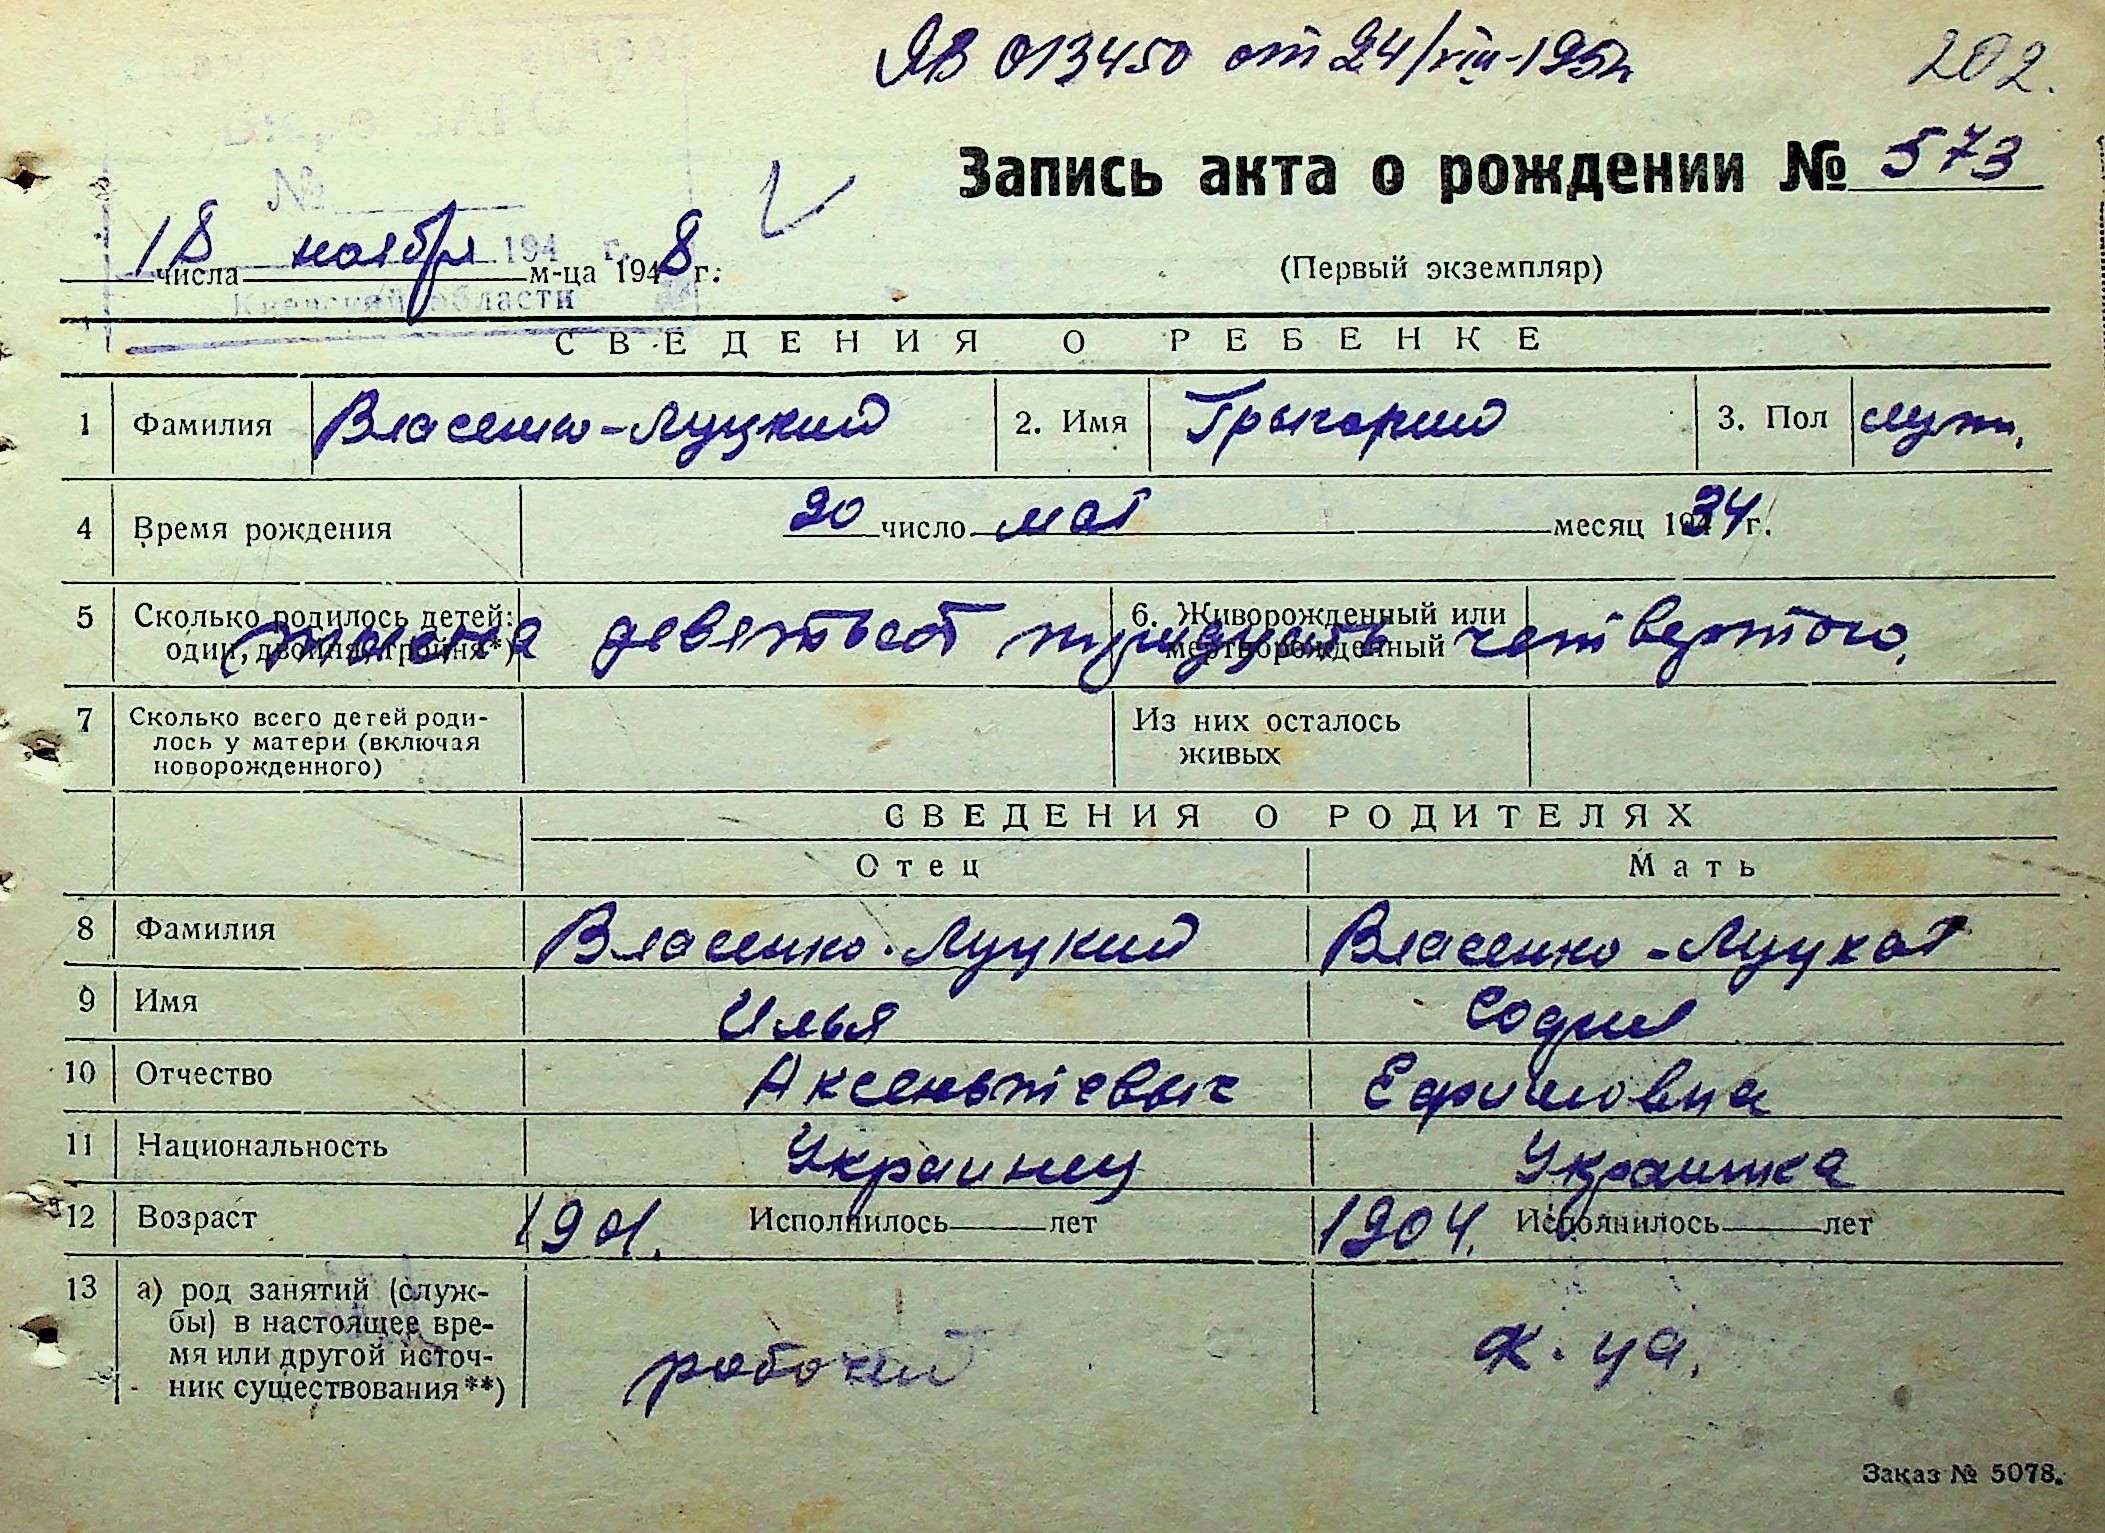 ЯВ 013450 от 24/VIII-195
202.
Запись акта о рождении № 573
№
18 числа ноября м-ца 1948 г.
194 г.
(Первый экземпляр)
Киевской области
СВЕДЕНИЯ О РЕБЕНКЕ
1 Фамилия Власенко-Луцкий 2. Имя Грыгорий 3. Пол муж.
4 Время рождения 20 число мая месяц 1934 г.
5 Сколько родилось детей: один, двойня, тройня*) 6. Живорожденный или мертворожденный
тысяча девятьсот тридцать четвертого.
7 Сколько всего детей роди-
лось у матери (включая
новорожденного)
Из них осталось
живых
СВЕДЕНИЯ О РОДИТЕЛЯХ
Отец Мать
8 Фамилия Власенко-Луцкий Власенко-Луцкая
9 Имя Илья София
10 Отчество Аксентьевыч Ефимовна
11 Национальность Украинец Украинка
12 Возраст 1901. Исполнилось лет 1904. Исполнилось лет
13 а) род занятий (служ-
бы) в настоящее вре-
мя или другой источ-
ник существования**)
рабочий к-ца.
Заказ № 5078.